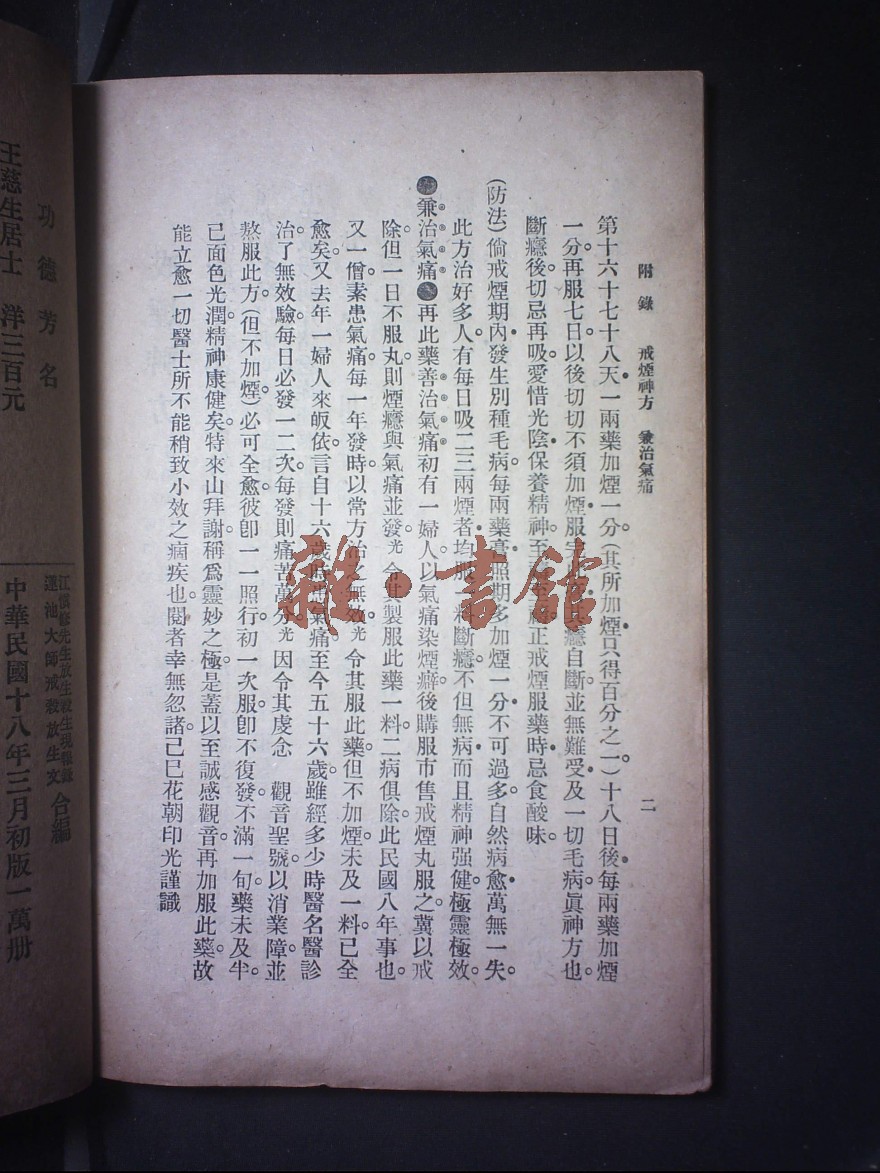 附錄　戒煙神方　兼治氣痛　二
第十六十七十八天一兩藥加煙一分(其所加煙只得百分之一)十八日後每兩藥加煙
一分再服七日以後切切不須加煙服完其癮自斷並無難受及一切毛病眞神方也
斷癮後切忌再吸愛惜光陰保養精神至正戒煙服藥時忌食酸味
(防法)倘戒煙期內發生別種毛病每兩藥膏照期多加煙一分不可過多自然病愈萬無一失
此方治好多人有每日吸二三兩煙者均服一料斷癮不但無病而且精神强健極靈極效
●兼治氣痛●再此藥善治氣痛初有一婦人以氣痛染煙癖後購服市售戒煙丸服之冀以戒
除但一日不服丸則煙癮與氣痛並發光令其製服此藥一料二病俱除此民國八年事也
又一僧素患氣痛每一年發時以常方治之無效光令其服此藥但不加煙未及一料已全
愈矣又去年一婦人來皈依言自十六歲氣痛至今五十六歲雖經多少時醫名醫診
治了無效驗每日必發一二次每發則痛苦萬分光因令其虔念　觀音聖號以消業障並
熬服此方(但不加煙)必可全愈彼卽一一照行初一次服卽不復發不滿一旬藥未及半
已面色光潤精神康健矣特來山拜謝稱爲靈妙之極是蓋以至誠感觀音再加服此藥故
能立愈一切醫士所不能稍致小效之痼疾也閱者幸無忽諸己巳花朝印光謹識
功德芳名
王慈生居士　洋三百元
江愼修先生放生殺生現報錄
蓮池大師戒殺放生文
合編
中華民國十八年三月初版一萬册
雜·書館